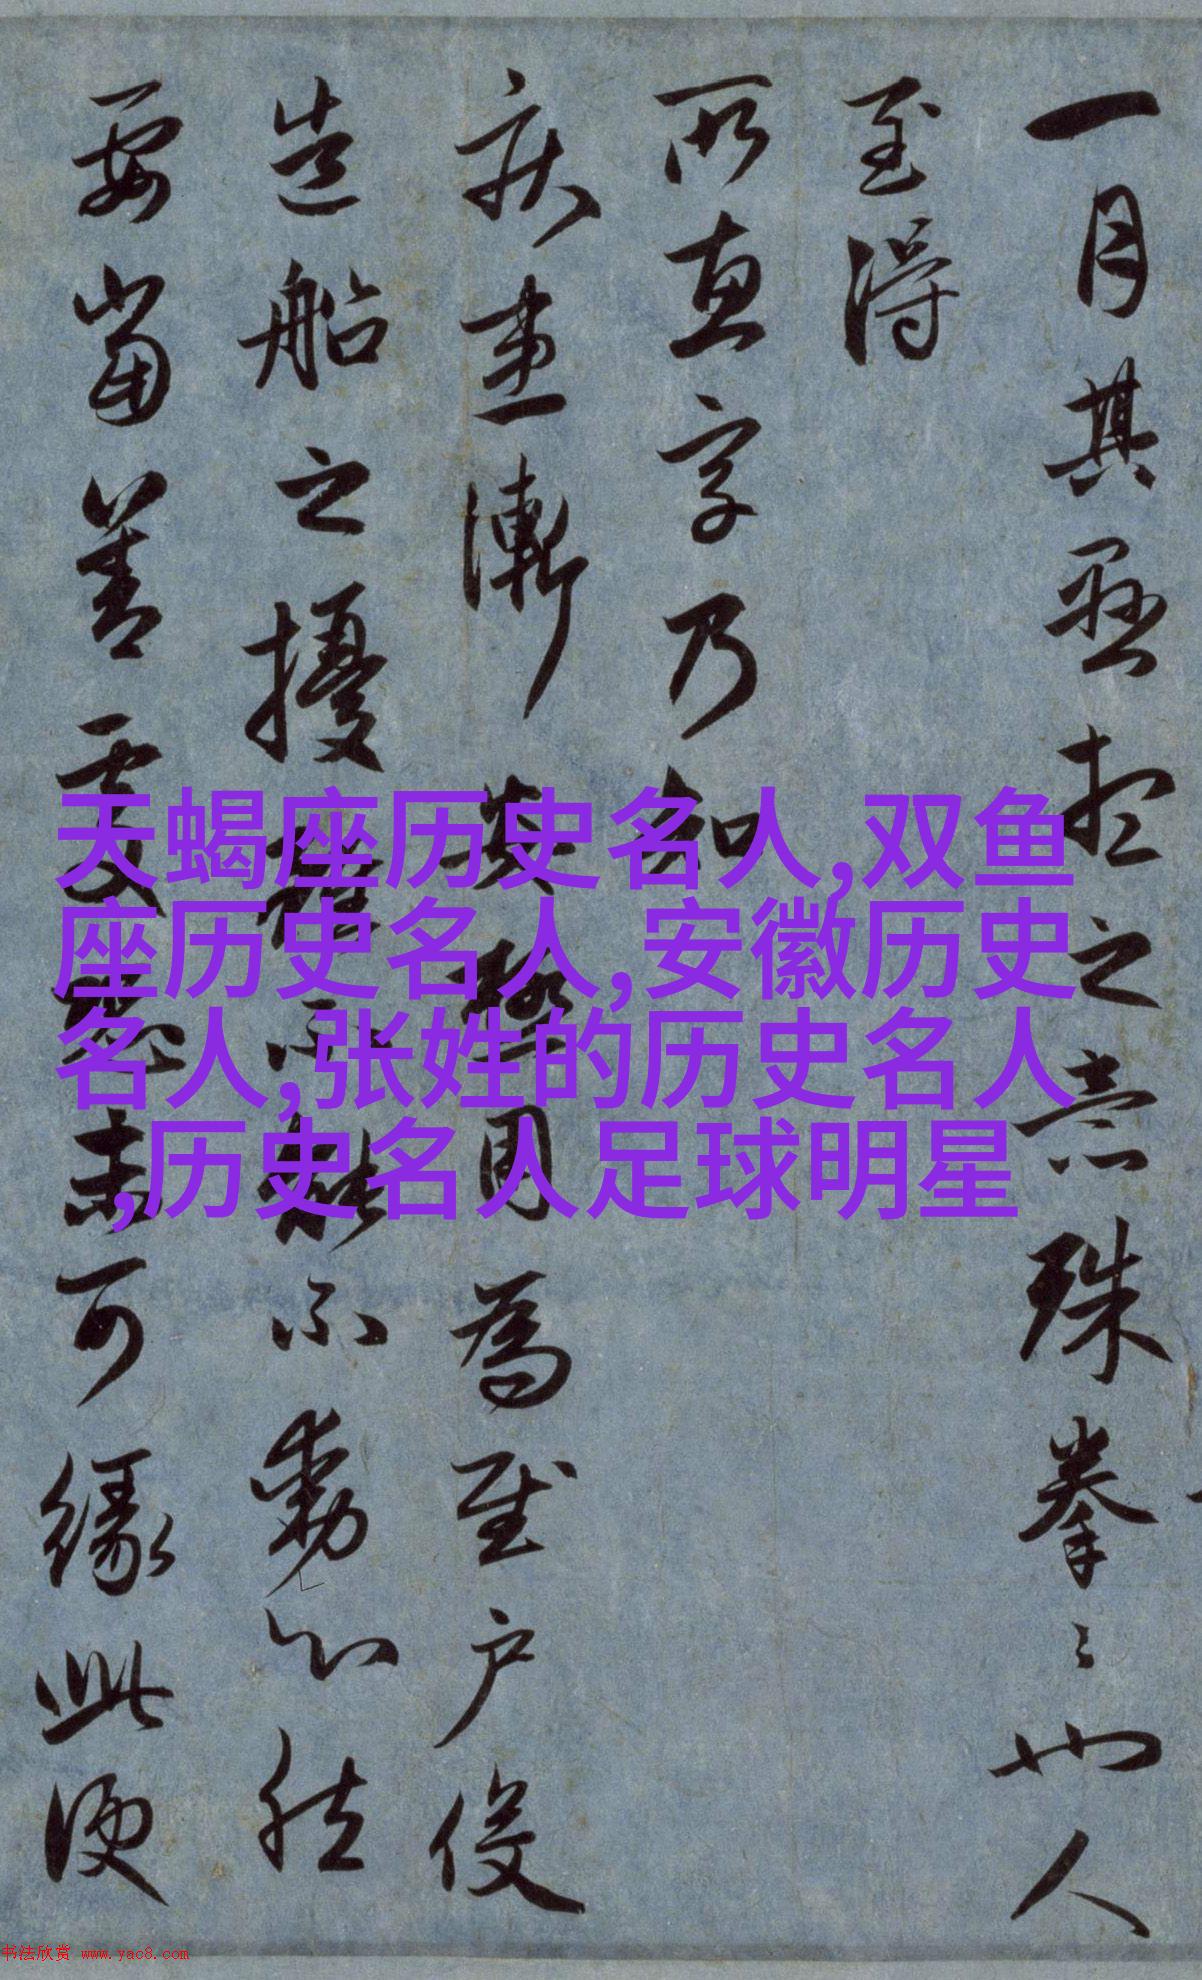 一月其之意殊拳也人
至得
所惠字乃知
漸為慰户
造船之擾不能不動心然
要當善處未可緣此便
天蝎座历史名人,双鱼
座历史名人,安徽历史
名人,张姓的历史名人
,历史名人足球明星
书法欣赏 www.yac8.com